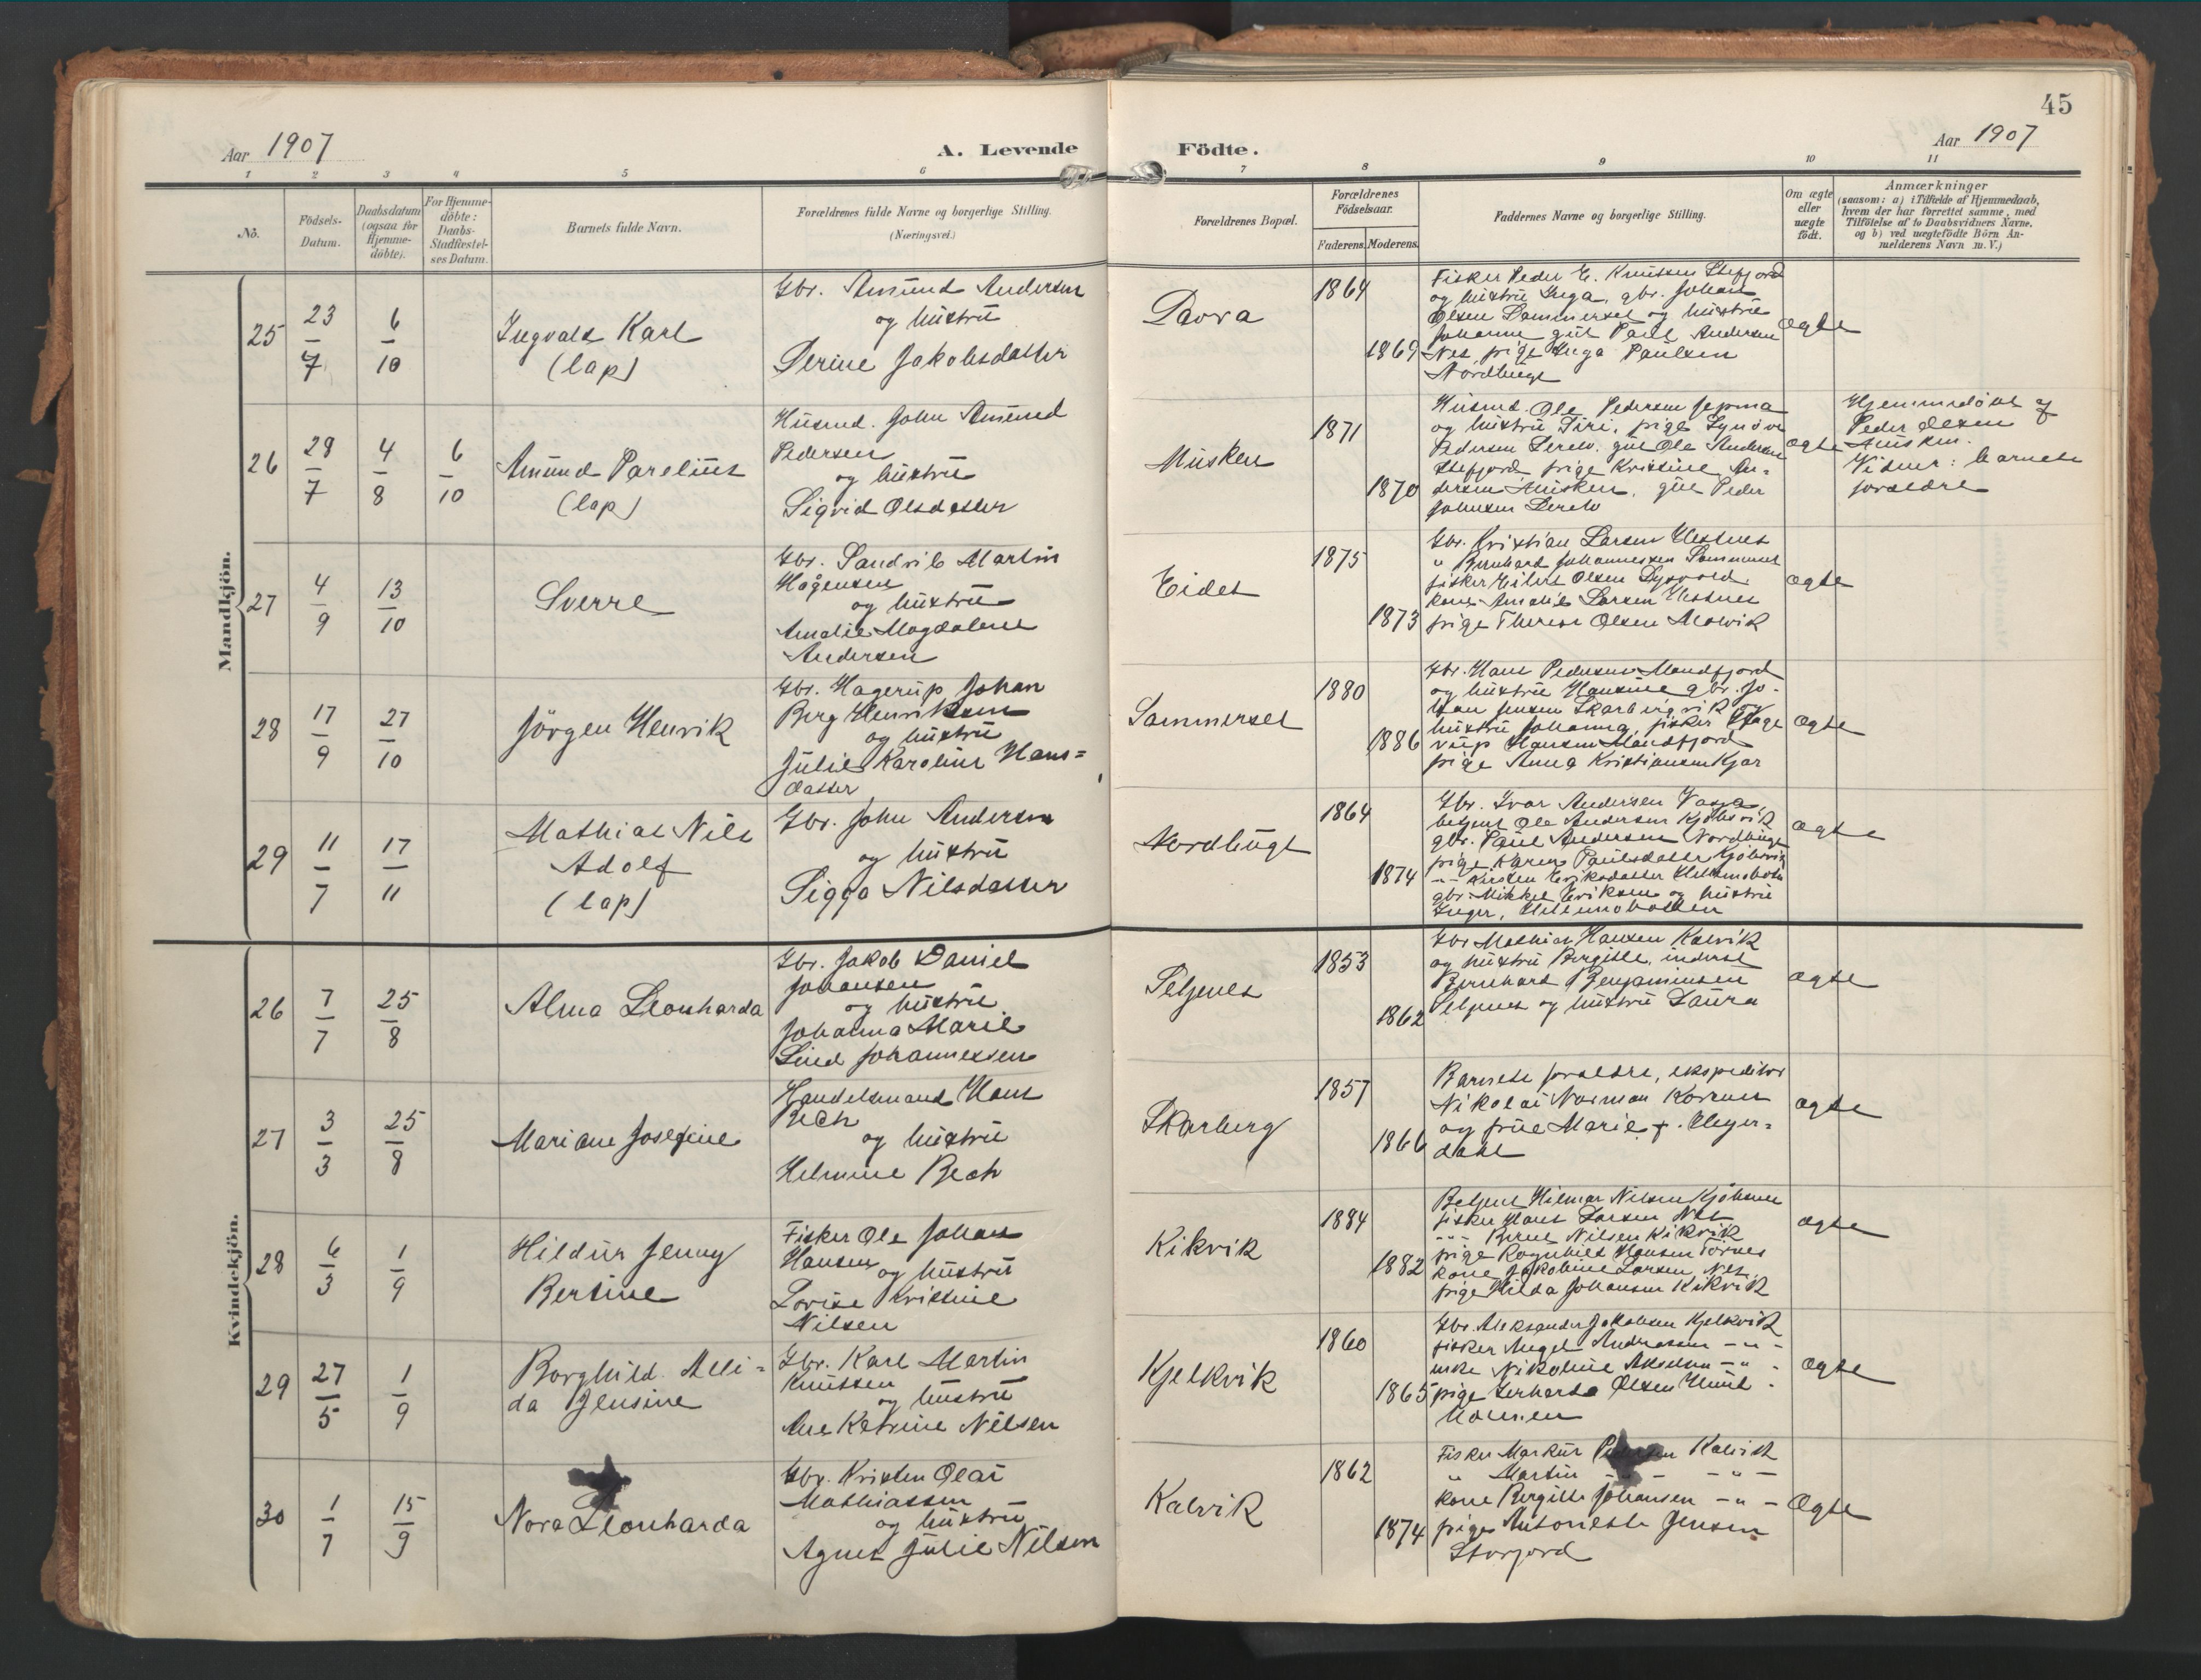 45
Aar 1907
A. Levende
Födte.
Aar 1907
1 2 3 4 5 6 7 8 9 10 11
No.
Födsels-
Datum.
Daabsdatum
(ogsaa for
Hjemme-
döbte).
For Hjemme-
döbte:
Daabs-
Stadfæstel-
ses Datum.
Barnets fulde Navn.
Forældrenes fulde Navne og borgerlige Stilling.
(Næringsvei.)
Forældrenes Bopæl.
Forældrenes
Födselsaar.
Faderens. Moderens.
Faddernes Navne og borgerlige Stilling.
Om ægte
eller
uægte
födt.
Anmærkninger
(saasom: a) i Tilfælde af Hjemmedaab,
hvem der har forrettet samme, med
Tilföielse af to Daabsvidners Navne,
og b) ved uægtefödte Börn An-
melderens Navn m.V.)
Mandkjön.
25
23/7
6/10
Ingvald Karl
(lap)
Gbr. Amund Andersen
og hustru
Perine Jakobsdatter
1864
1869
Fisker Peder E. Knutsen Stefjord
og hustru Inga, gbr. Johan
Olsen Sommerset og hustru
Johanna, gut Paul Andersen
Nes, pige Inga Paulsen
Nordbugt
ægte
26
28/7
4/8
6/10
Amund Parelius
(lap)
Husmd. John Amund
Pedersen
og hustru
Sigrid Olsdatter
Musken
1871
1870
Husmd. Ole Pedersen
og hustru Siri, pige Synöve
Pedersen gut Ole Andersen
Stefjord, pige Kristine An-
dersen Musken, gut Peder
Johnsen
ægte
Hjemmedöbt af
Peder Olsen
Musken.
Vidner: barnets
forældre
27
4/9
13/10
Sverre
Gbr. Sandvik Martin
Hågensen
og hustru
Amalie Magdalene
Andersen
Eidet
1875
1873
Gbr. Kristian Larsen Hestnes
" Bernhard Johannessen Sommerset
fisker Eilert Olsen Dypvold
kone Amalie Larsen Hestnes
pige Therese Olsen
ægte
28
17/9
27/10
Jörgen Henrik
Gbr. Hagerup Johan
Berg Henriksen
og hustru
Julie Karoline Hans=
datter
Sommerset
1880
1886
Gbr. Hans Pedersen Mandfjord
og hustru Hansine gbr. Jo-
han Jensen Skarbergvik
hustru Johanna, fisker Hage
rup Hansen Mandfjord
pige Anna Kristiansen Kjær
ægte
29
11/7
17/11
Mathias Nils
Adolf
(lap)
Gbr. John Andersen
og hustru
Sigga Nilsdatter
Nordbugt
1864
1874
Gbr. Ivar Andersen
betjent Ole Andersen Kjöbsvik
gbr. Paul Andersen Nordbugt
pige Karen Paulsdatter Kjöbsvik
-"- Kirsten Eriksdatter Hellemobotn
gbr. Mikkel Eriksen og hustru
Inger, Hellemobotten
ægte
Kvindekjön.
26
7/7
25/8
Alma Leonharda
Gbr. Jakob Daniel
Johansen
og hustru
Johanna Marie
Lind Johannessen
Seljenes
1853
1862
Gbr. Mathias Hansen Kalvik
og hustru Bergitte, inderst
Bernhard Benjaminsen
Seljenes og hustru Laura
ægte
27
3/3
25/8
Mariane Josefine
Handelsmand Hans
Bech
og hustru
Helmine Bech
Skarberg
1857
1866
Barnets forældre, ekspeditör
Nikolai Norman
og frue Marie f. Heyer=
dahl
ægte
28
6/3
1/9
Hildur Jenny
Bertine
Fisker Ole Johan
Hansen
og hustru
Lovise Kristine
Nilsen
Kikvik
1884
1882
Betjent Hilmar Nilsen
fisker Hans Larsen Nes
-"- Bernt Nilsen Kikvik
pige Ragnhild Hansen
kone Jakobine Larsen Nes
pige Hilda Johansen Kikvik
ægte
29
27/5
1/9
Borghild Alli=
da Jensine
Gbr. Karl Martin
Knutsen
og hustru
Ane Katrine Nilsen
Kjelkvik
1860
1865
Gbr. Aleksander Jakobsen Kjelkvik
fisker Angel Andreasen -"-
enke Nikoline Akselsen -"-
pige Gerharda Olsen
ægte
30
1/7
15/9
Nora Leonharda
Gbr. Kristen Olai
Mathiassen
og hustru
Agnes Julie Nilsen
Kalvik
1862
1874
Fisker Markus Pedersen Kalvik
" Martin -"- -"-
kone Bergitte Johansen -"-
pige Antonette Jensen
Storjord
Ægte